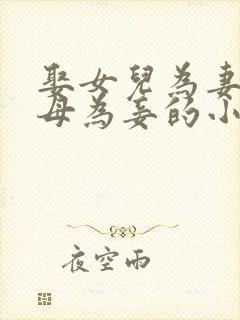 娶女兒為妻
母為妾的小
夜空雨